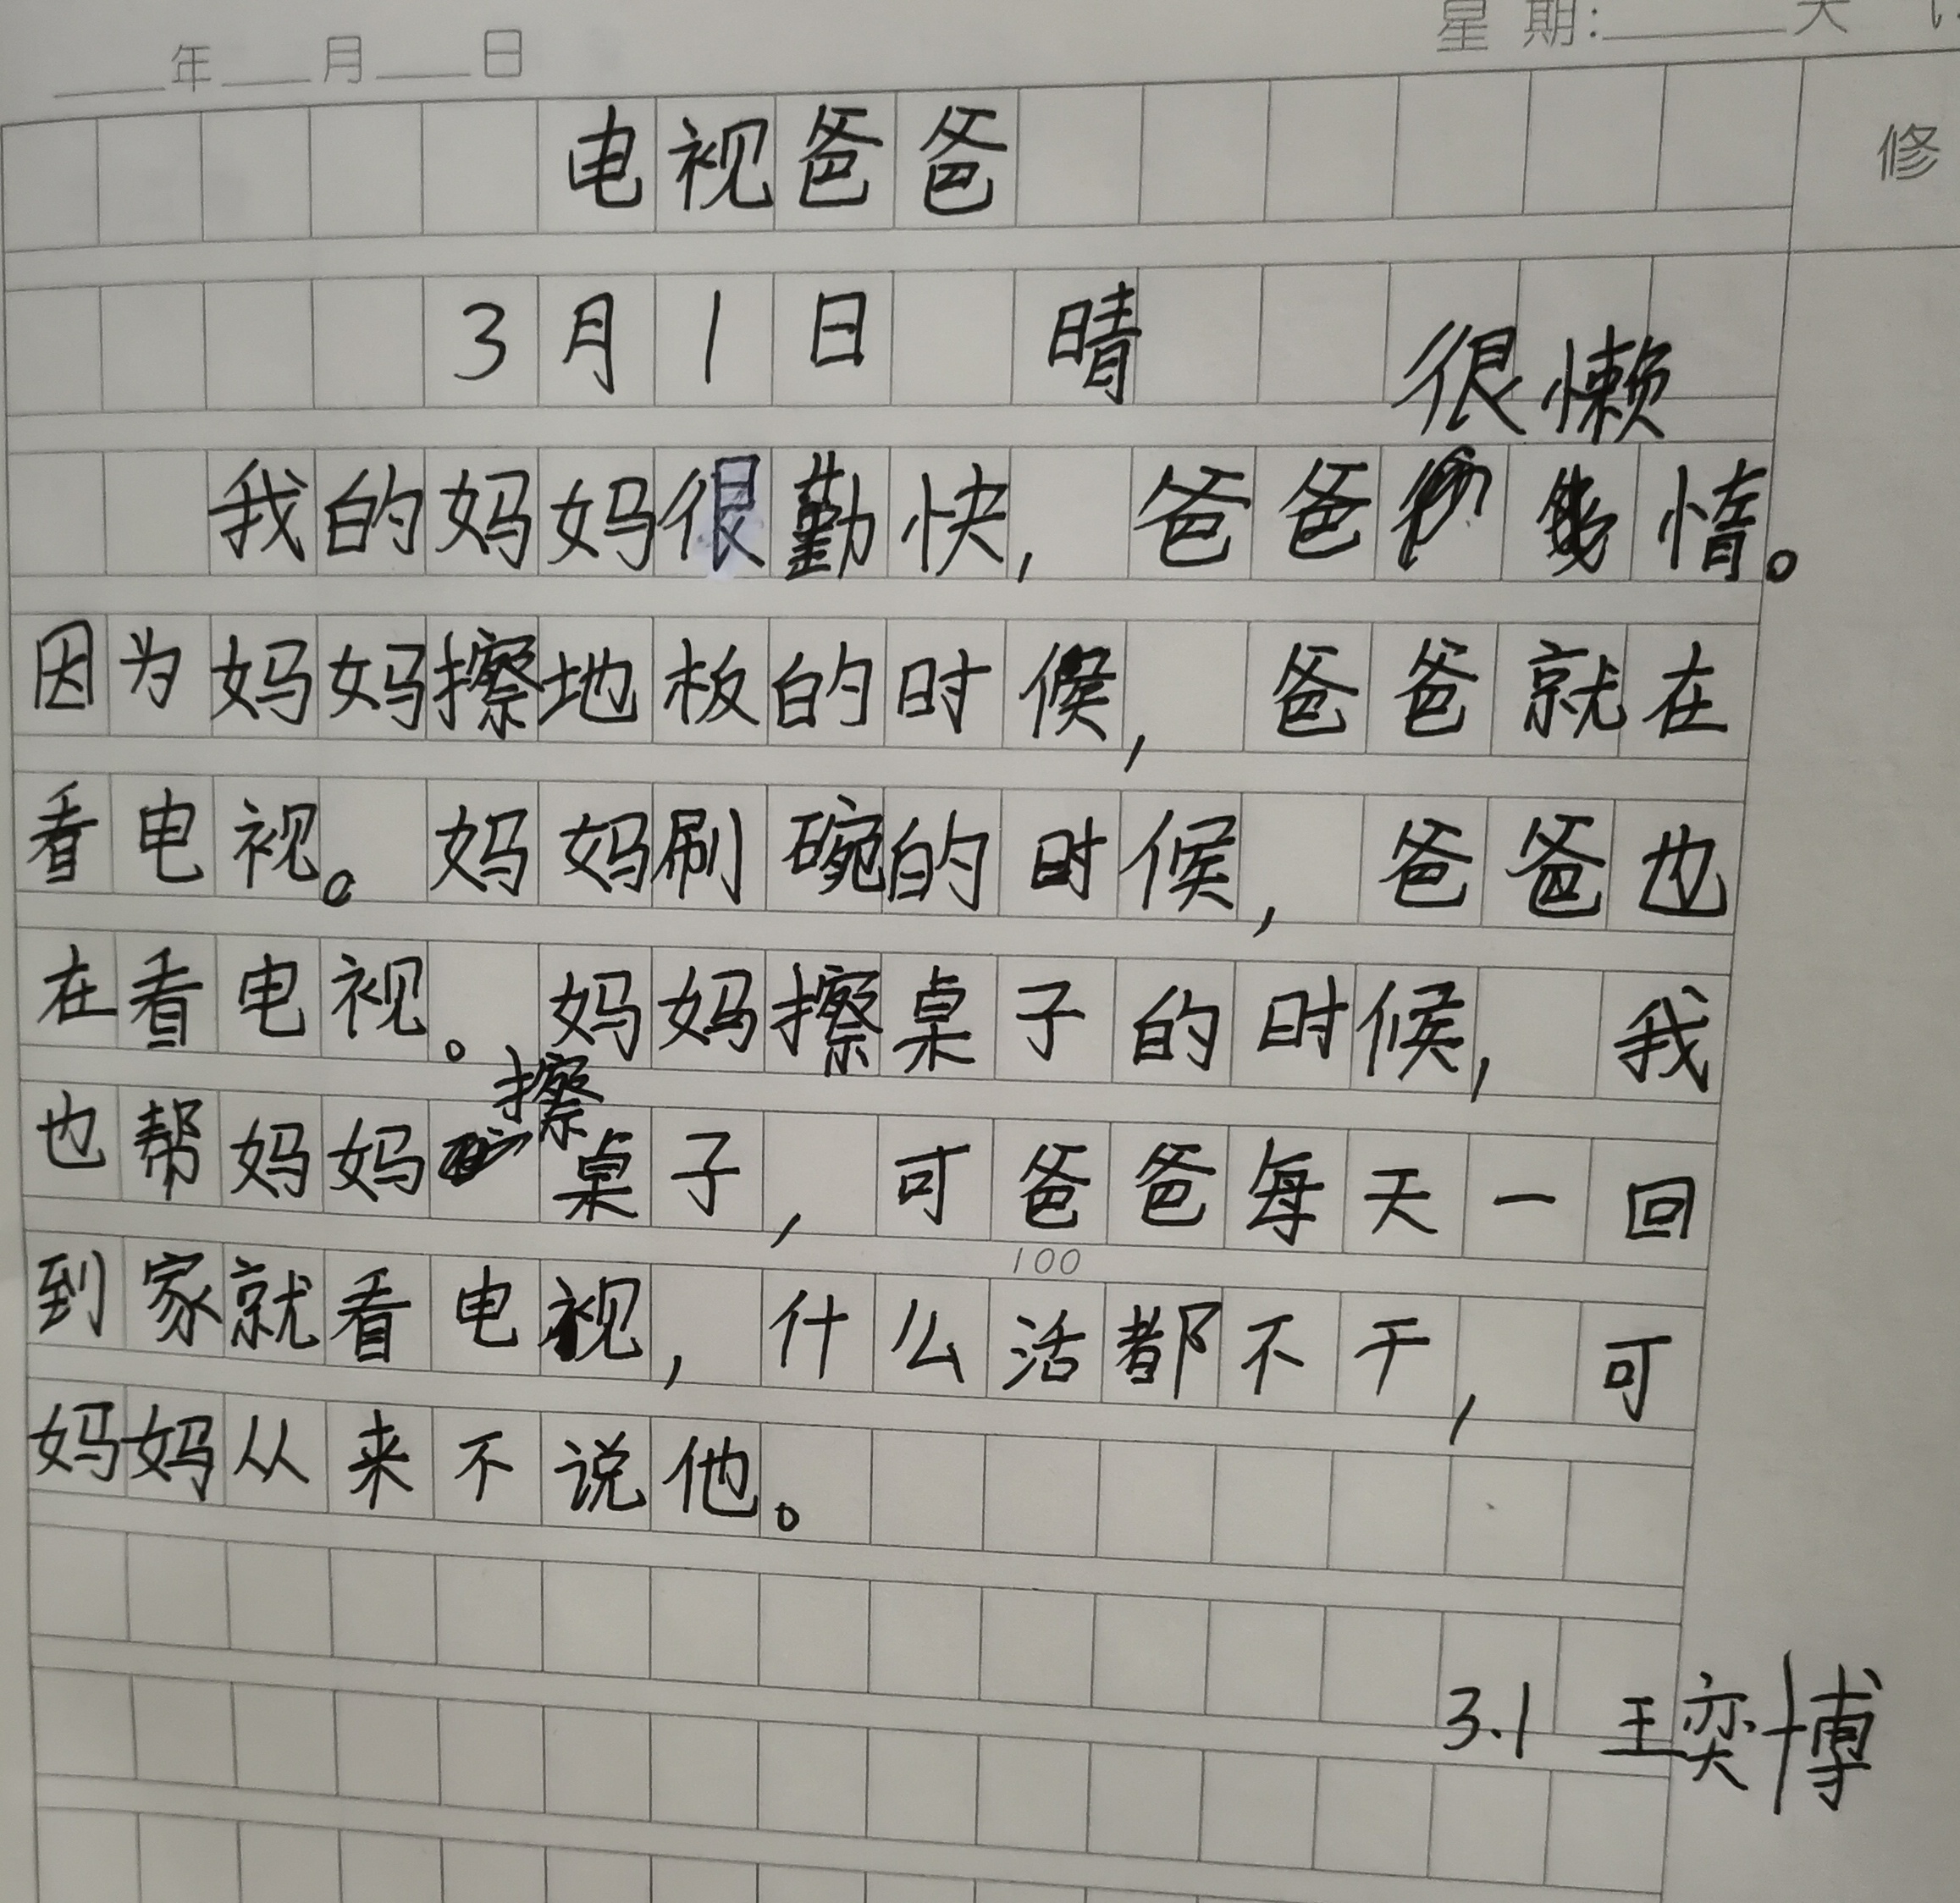 ____年____月____日 星期:________天
修
电视爸爸
3月1日 晴
很懒
我的妈妈很勤快,爸爸惰。
因为妈妈擦地板的时候,爸爸就在
看电视。妈妈刷碗的时候,爸爸也
在看电视。妈妈擦桌子的时候,我
擦
也帮妈妈桌子,可爸爸每天一回
100
到家就看电视,什么活都不干,可
妈妈从来不说他。
3.1 王奕博